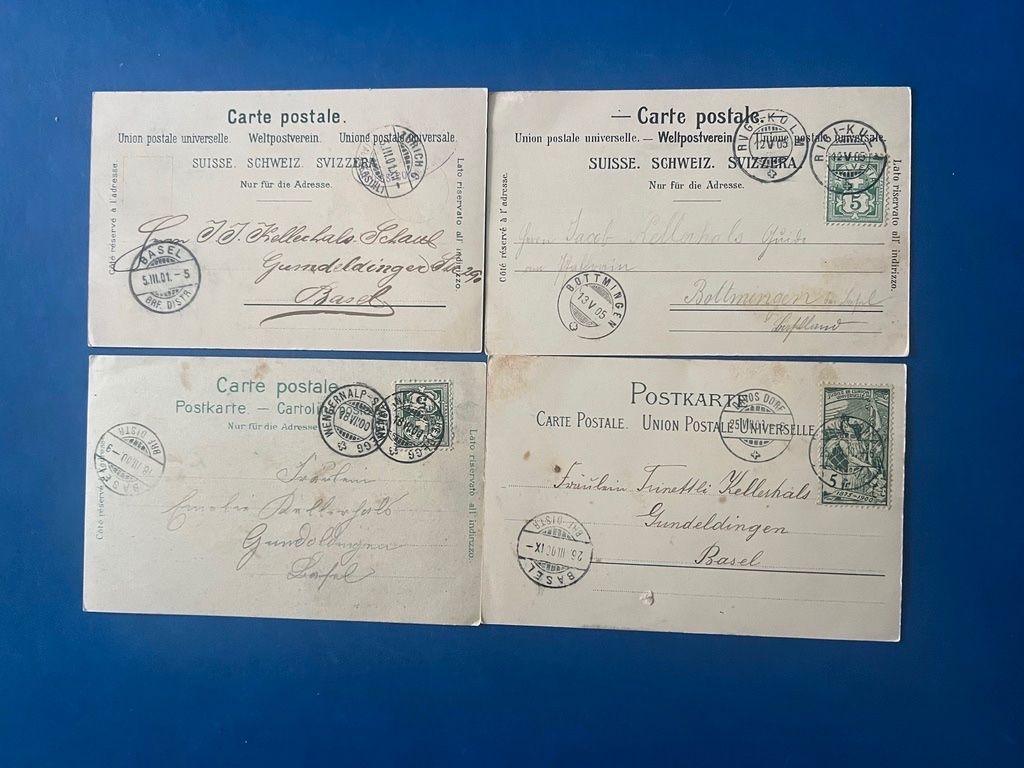 Carte postale.
Union postale universelle. Weltpostverein. Unione postale universale.
SUISSE. SCHWEIZ. SVIZZERA.
Nur für die Adresse.
Côté réservé à l'adresse.
Lato riservato all' indirizzo.
ZÜRICH 6
BASEL
5.III.01.-5
BRF. DISTR.
J. J. Kellerhals-Schaub
Gundeldinger
Basel
— Carte postale.
Union postale universelle. — Weltpostverein. Unione postale universale.
SUISSE. SCHWEIZ. SVIZZERA.
Nur für die Adresse.
Côté réservé à l'adresse.
Lato riservato all' indirizzo.
RIGI-KULM
12 V 05
RIGI-KULM
12 V 05
5
Herrn Jacob Kellerhals Guide
Bottmingen
BOTTMINGEN
13 V 05
Carte postale.
Postkarte. —
Nur für die Adresse
Lato riservato all' indirizzo.
WENGERNALP-SCHEIDEGG
BASEL
BRF. DISTR.
Fräulein
Emelie Kellerhals
Gundoldingen
Basel
POSTKARTE.
CARTE POSTALE. UNION POSTALE UNIVERSELLE.
DAVOS DORF
5
1875–1900
Fräulein Kellerhals
Gundeldingen
Basel
BASEL
BRF. DISTR.